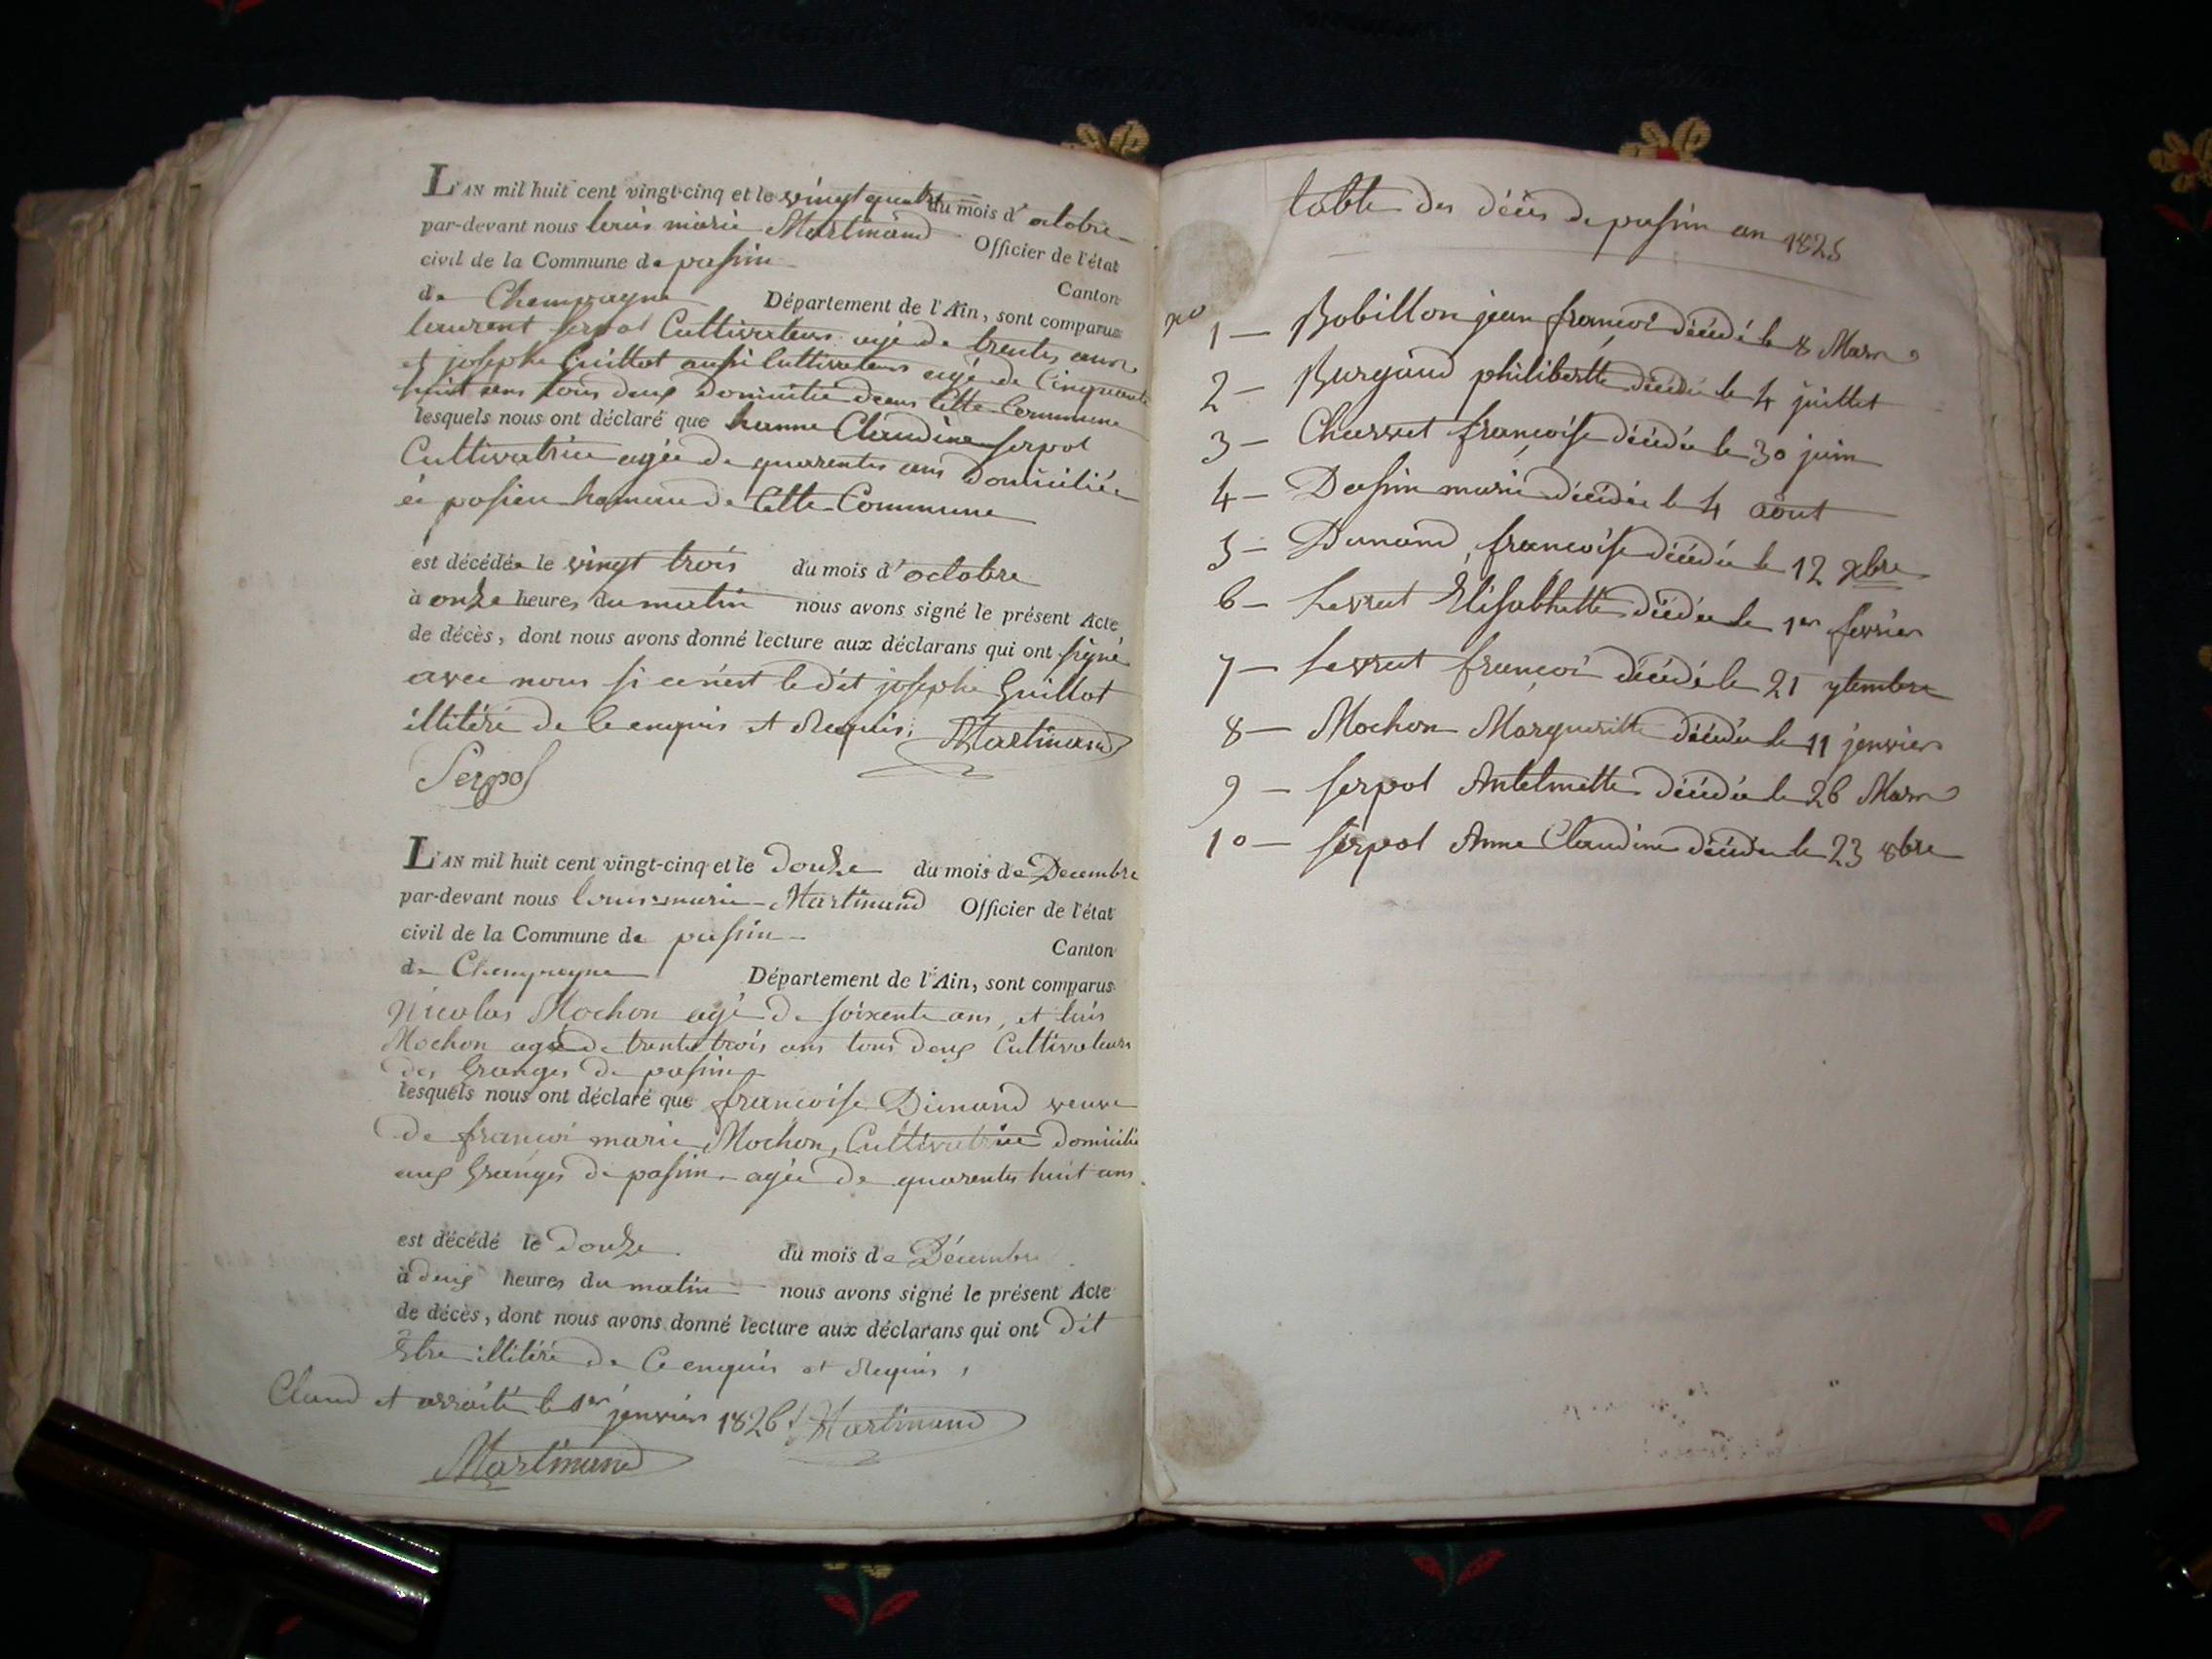 L'AN mil huit cent vingt-cinq et le vingt quatre du mois d'octobre
par-devant nous louis marie Martinand Officier de l'état
civil de la Commune de passin Canton
de Champagne Département de l'Ain, sont comparus
laurent serpol Cultivateur agé de trentes ans
et josephe Guillot aussi Cultivateur agé de Cinquante
huit ans tous deux domicilié dans Cette Commune
lesquels nous ont déclaré que hanne Claudine serpol
Cultivatrice agée de quarentes ans domiciliée
à posieu hameau de Cette Commune
est décédée le vingt trois du mois d'octobre
à onze heures du matin nous avons signé le présent Acte
de décès, dont nous avons donné lecture aux déclarans qui ont signé
avec nous si ce n'est le dit josephe Guillot
illitéré de ce enquis et Requis; Martinand
Serpol
L'AN mil huit cent vingt-cinq et le douze du mois de Decembre
par-devant nous louis marie Martinand Officier de l'état
civil de la Commune de passin Canton
de Champagne Département de l'Ain, sont comparus
Nicolas Mochon agé de soixente ans, et luis
Mochon agé de trente trois ans tous deux Cultivateurs
des Granges de passin
lesquels nous ont déclaré que francoise Dimand veuve
de françoi marie Mochon, Cultivatrice domicilié
aux Granges de passin agée de quarentes huit ans
est décédé le douze du mois de Décembre
à deux heures du matin nous avons signé le présent Acte
de décès, dont nous avons donné lecture aux déclarans qui ont dit
Etre illitéré de Ce enquis et Requis,
Claud et arraité le 1er janvier 1826 Martinand
Martinand
table des décès de passin an 1825
no
1 — Bobillon jean françoi décédé le 8 Mars
2 — Burgaud philibertte décédée le 4 juillet
3 — Charvet françoise décédée le 30 juin
4 — Dassin marie décédée le 4 août
5 — Dumand, francoise décédée le 12 xbre
6 — Levrat Élisabhette décédée le 1er fevrier
7 — Levrat françoi décédé le 21 7tembre
8 — Mochon Margueritte décédée le 11 janvier
9 — serpol Antelmette décédée le 26 Mars
10 — serpol Anne Claudine décédée le 23 8bre